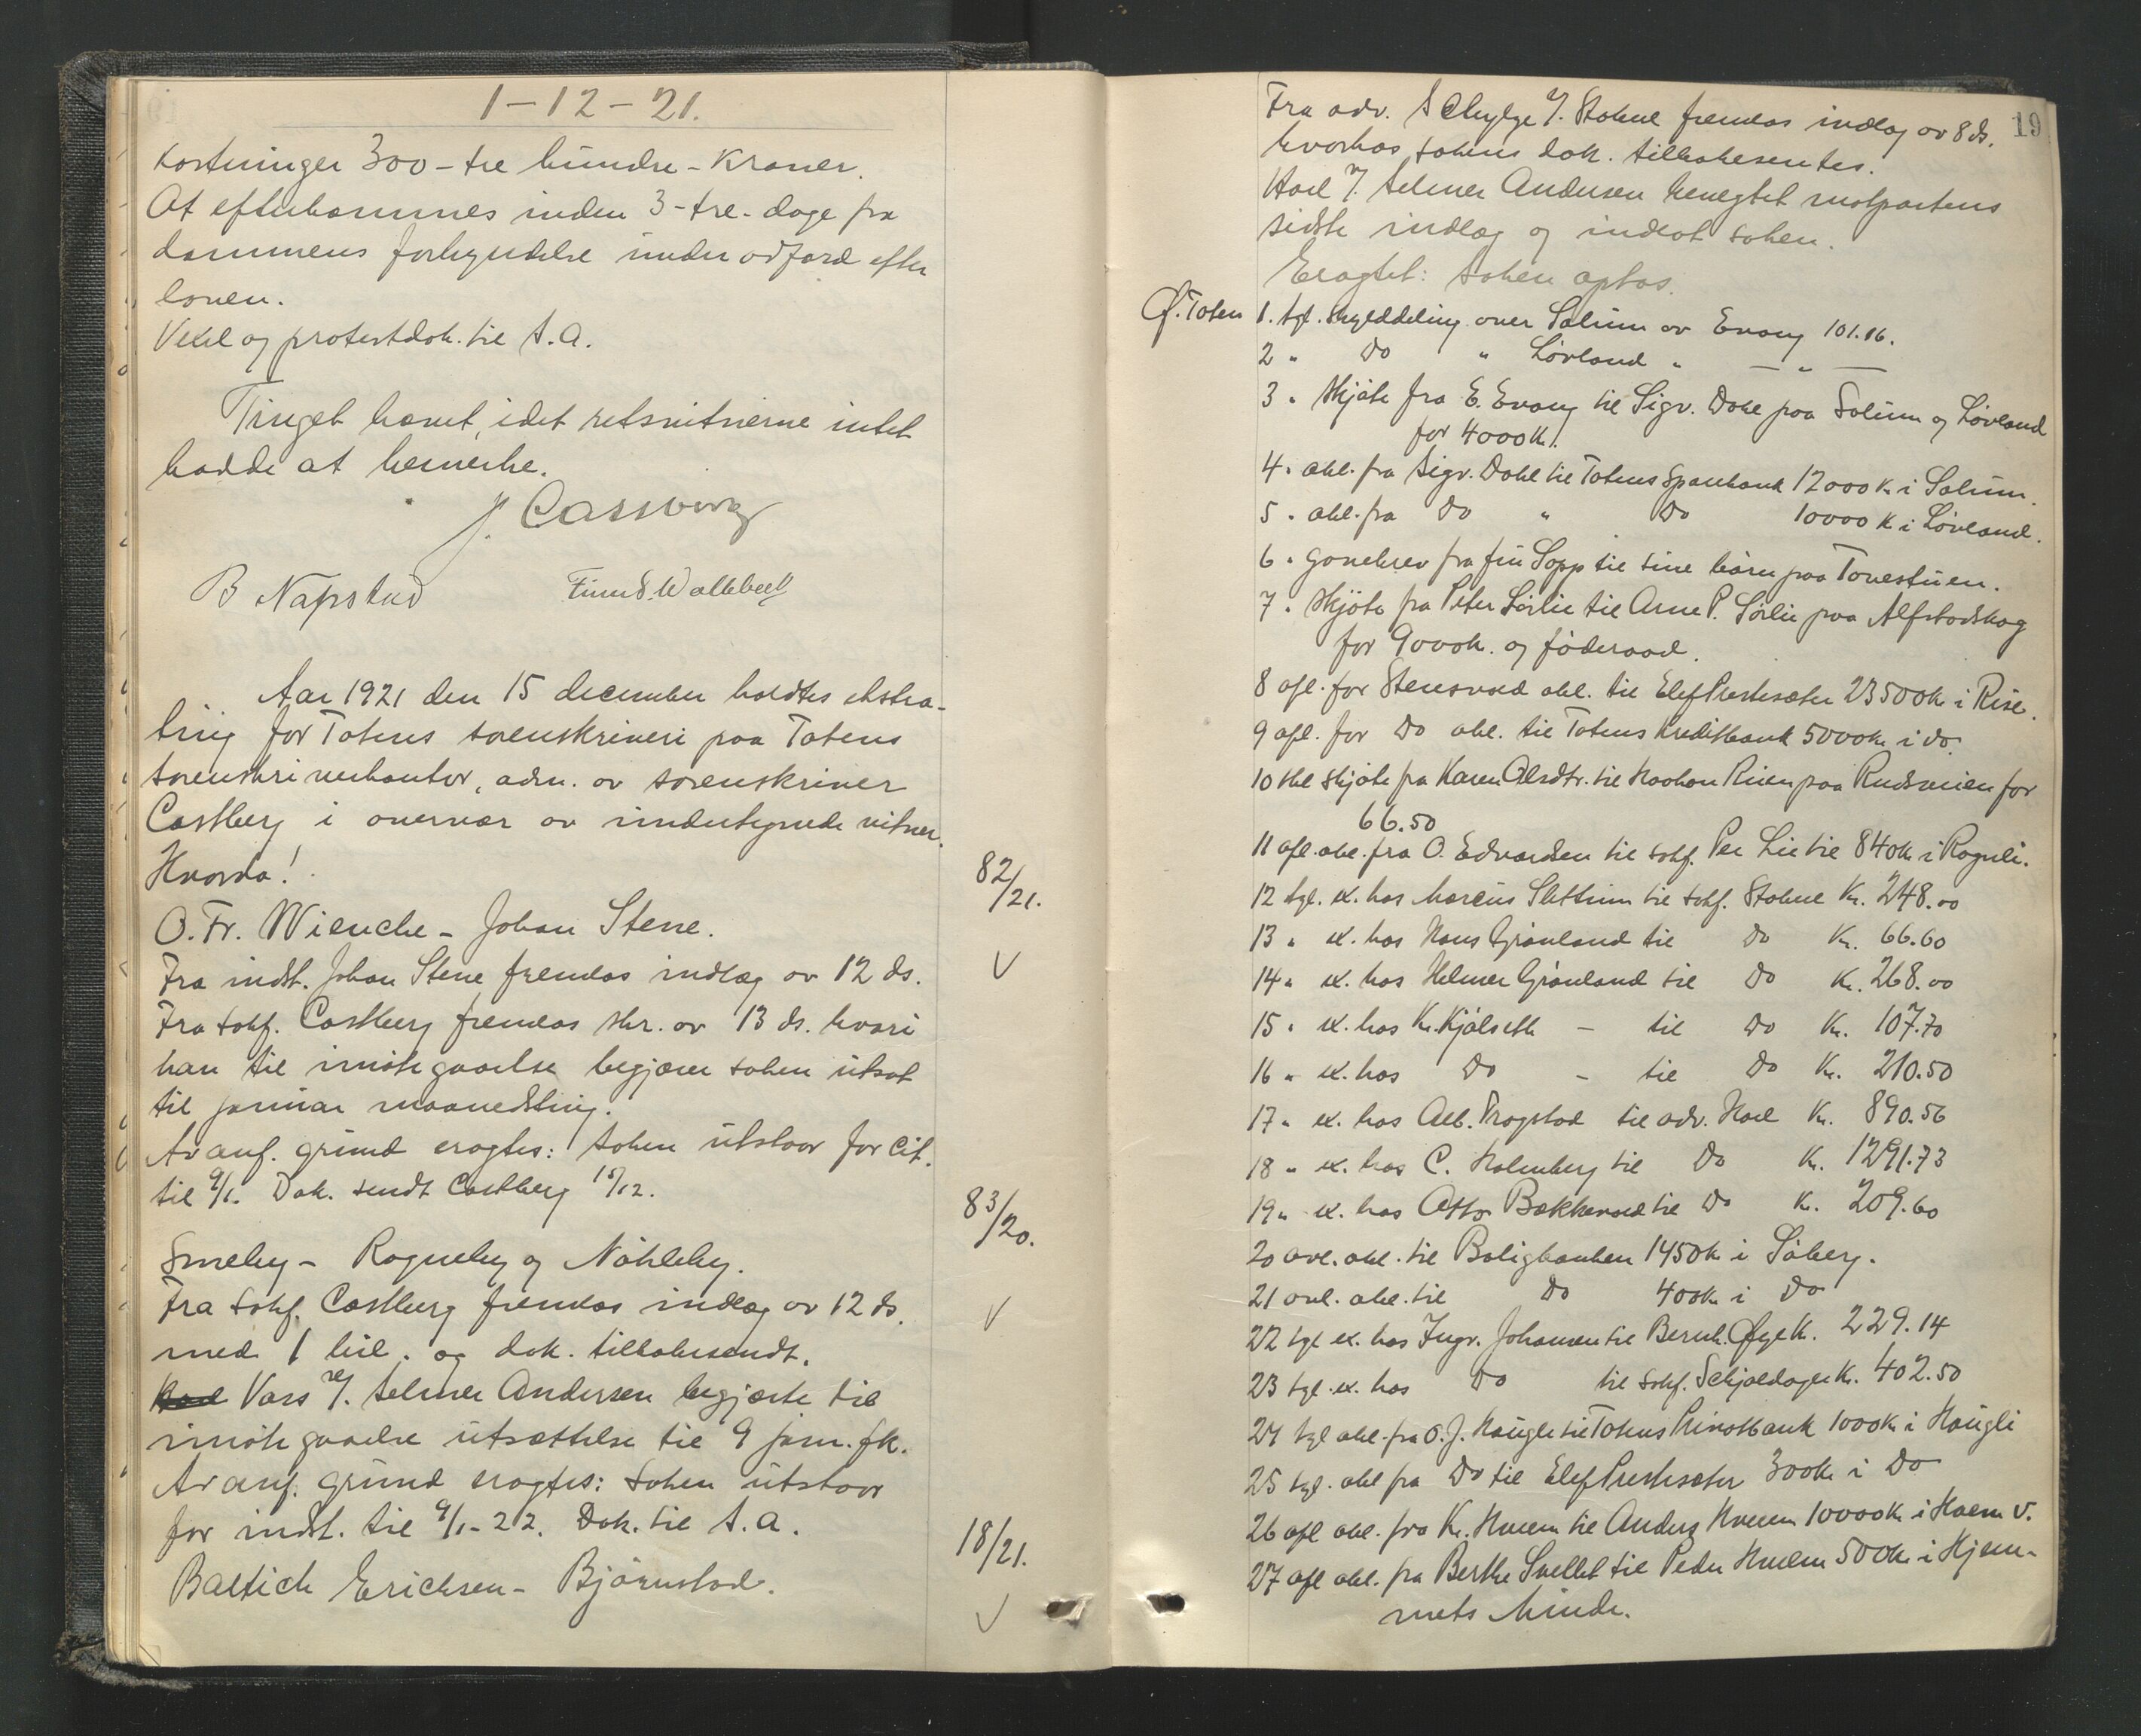 1-12-21.
kostninger 300 - tre hundre - Kroner.
At efterkommes inden 3 - tre - dage fra
dommens forkyndelse under adfærd efter
loven.
Vexel og protestdok. til S.A.
Tinget hævet, idet retsvitnerne intet
hadde at bemerke.
J. Castberg
B Napstad
Aar 1921 den 15 december holdtes ekstra-
ting for Totens sorenskriveri paa Totens
sorenskriverkontor, adm. av sorenskriver
Castberg i overvær av undertegnede vitner.
Hvorda!
82/21.
O. Fr. Wiencke - Johan Stene.
Fra indst. Johan Stene fremlas indlæg av 12 ds. V
Fra sakf. Castberg fremlas skr. av 13 ds. hvori
han til imøtegaaelse begjærer saken utsat
til januar maanedsting.
Av anf. grund eragtes: Saken utstaar for Cit.
til 9/1. Dok. sendt Castberg 15/12.
83/20.
Smeby - Ragneby og Nøkleby.
Fra sakf. Castberg fremlas indlæg av 12 ds. V
med 1 bil. og dok. tilbakesendt.
Vars v/. Selmer Andersen begjærte til
imøtegaaelse utsættelse til 9 jan. fk.
Av anf. grund eragtes: Saken utstaar
for indst. til 9/1-22. Dok. til S.A.
18/21.
Baltich Erichsen - Bjørnstad.
V
19
Fra adv. Schylze v/. Stabel fremlas indlæg av 8 ds.
hvorhos sakens dok. tilbakesentes.
Hoel v/. Selmer Andersen benegtet motpartens
sidste indlæg og indlot saken.
Eragtet: Saken optas.
Ø. Toten 1. tgl. skylddeling over Solum av Evang 101.16.
2 " Do " Løvland " — " —
3 " Skjøte fra E. Evang til Sigv. Dahl paa Solum og Løvland
for 4000 k.
4 " obl. fra Sigv. Dahl til Totens Sparebank 12000 k. i Solum.
5 " obl. fra Do " Do 10000 k i Løvland.
6 " gavebrev fra fru Sopp til sine børn paa Tonestuen.
7 " Skjøte fra Peter Sørlie til Arne P. Sørlie paa Alfstadskog
for 9000 k. og føderaad.
8 afl. for Stensvold obl. til Elef Prestesæter 23500 k. i Rise.
9 afl. for Do obl. til Totens Kreditbank 5000 k. i do.
10 skjøte fra Karen Olsdtr. til Haakon Ruen paa Rudsveien for
66.50
11 afl. obl. fra O. Edvardsen til sakf. Per Lie til 840 k. i Rognli.
12 tgl. ex. hos Marcus Slettum til sakf. Stabel Kr. 248.00
13 " ex. hos Hans Grønland til Do Kr. 66.60
14 " ex. hos Helmer Grønland til Do Kr. 268.00
15 " ex. hos Kr. Kjølseth - til Do Kr. 107.70
16 " ex. hos Do - til Do Kr. 210.50
17 " ex. hos Alb. Dragstad til adv. Hoel Kr. 890.56
18 " ex. hos C. Holmberg til Do Kr. 1291.73
19 " ex. hos Otto Bækkevold til Do Kr. 209.60
20 avl. obl. til Boligbanken 1450 k i Søberg.
21 avl. obl. til Do 400 k i Do
22 tgl ex. hos Ingv. Johansen til Bernh. Øye K. 229.14
23 tgl. ex. hos Do til sakf. Schjoldager K. 402.50
24 tgl obl. fra O. J. Haugli til Totens Privatbank 1000 k i Haugli
25 tgl. obl fra Do til Elef Prestesæter 300 k i Do
26 afl obl. fra Kr. Hveem til Anders Hveem 10000 k i Hveem v.
27 afl obl. fra Berthe Svellet til Peder Hveem 500 k i Hjem-
mets Minde.